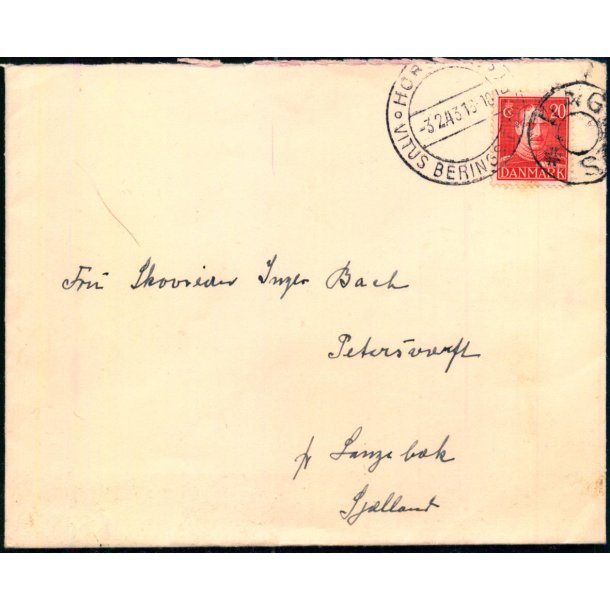 VITUS BERINGS
-3.2.43 13-
20
DANMARK
Fru Skovrider Inger Bach
Petersværft
pr Langebæk
Sjælland